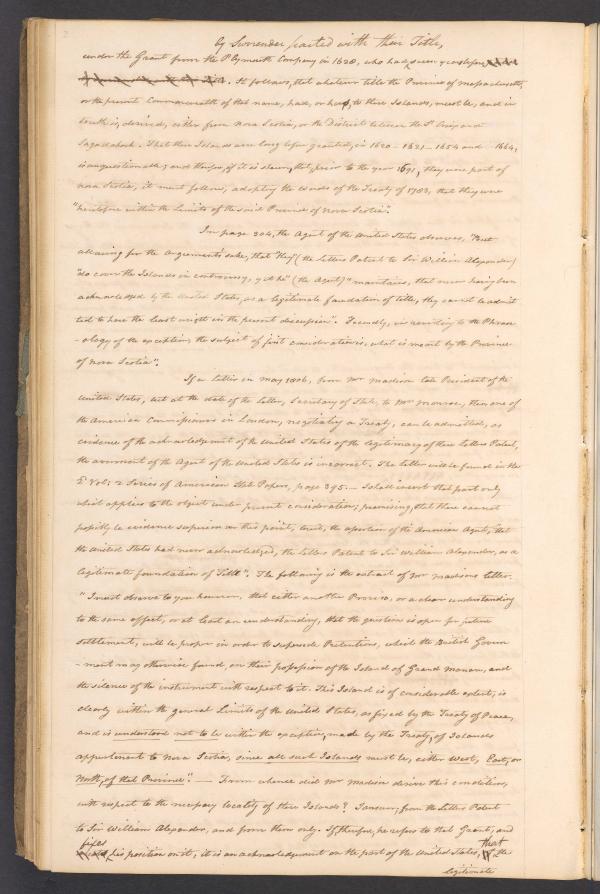 by Surrender parted with their Title,
under the Grant from the Plymouth Company in 1628, who had
It follows, that whatever title the Province of Massachusetts,
or the present Commonwealth of that name, had, or has, to these Islands, must be, and in
truth is, derived, either from Nova Scotia, or the District between the St. Croix and
Sagadahock. That these Islands were long before granted, in 1620 - 1621 - 1654 and 1664,
is unquestionable; and therefore, if it is shewn, that, prior to the year 1691, they were part of
Nova Scotia, it must follow, adopting the words of the Treaty of 1783, that they were
"heretofore within the Limits of the said Province of Nova Scotia".
In page 304, the Agent of the United States observes, "But
allowing for the argument's sake, that "they" (the Letters Patent to Sir William Alexander)
"do cover the Islands in controversy, yet he" (the Agent) "maintains, that never having been
acknowledged by the United States, as a legitimate foundation of title, they cannot be admit
ted to have the least weight in the present discussion". Secondly, in according to the Phrase
-ology of the exception, the subject of first consideration is, what is meant by the Province
of Nova Scotia".
If a Letter in May 1806, from Mr Madison late President of the
United States, but at the date of the Letter, Secretary of State, to Mr Monroe, then one of
the American Commissioners in London, negotiating a Treaty, can be admitted, as
evidence of the acknowledgement of the United States of the legitimacy of these Letters Patent,
the averment of the Agent of the United States is incorrect. The Letter will be found in the
Vol: 2 Series of American State Papers, page 395. — I shall insert that part only
which applies to the object under present consideration; promising, that there cannot
possibly be evidence superior on this point, to meet, the assertion of the American Agent, "that
the United States had never acknowledged, the Letters Patent to Sir William Alexander, as a
legitimate foundation of Title". The following is the extract of Mr Madisons Letter.
"I must observe to you however, that either another Proviso, or a clear understanding
to the same effect, or at least an understanding, that the question is open for future
settlement, will be proper in order to supersede Pretentions, which the British Govern
-ment may otherwise found, on their possession of the Island of Grand Manan, and
the silence of the instrument with respect to it. This Island is of considerable extent, is
clearly within the general Limits of the United States, as fixed by the Treaty of Peace,
and is understood not to be within the exception, made by the Treaty, of Islands
appurtenant to Nova Scotia, since all such Islands must be, either West, East, or
North, of that Province". — From whence did Mr Madison derive this condition,
with respect to the necessary locality of these Islands? I answer, from the Letters Patent
to Sir William Alexander, and from them only. If therefore, he refers to that Grant, and
fixes his position on it, it is an acknowledgement on the part of the United States, that the
legitimate